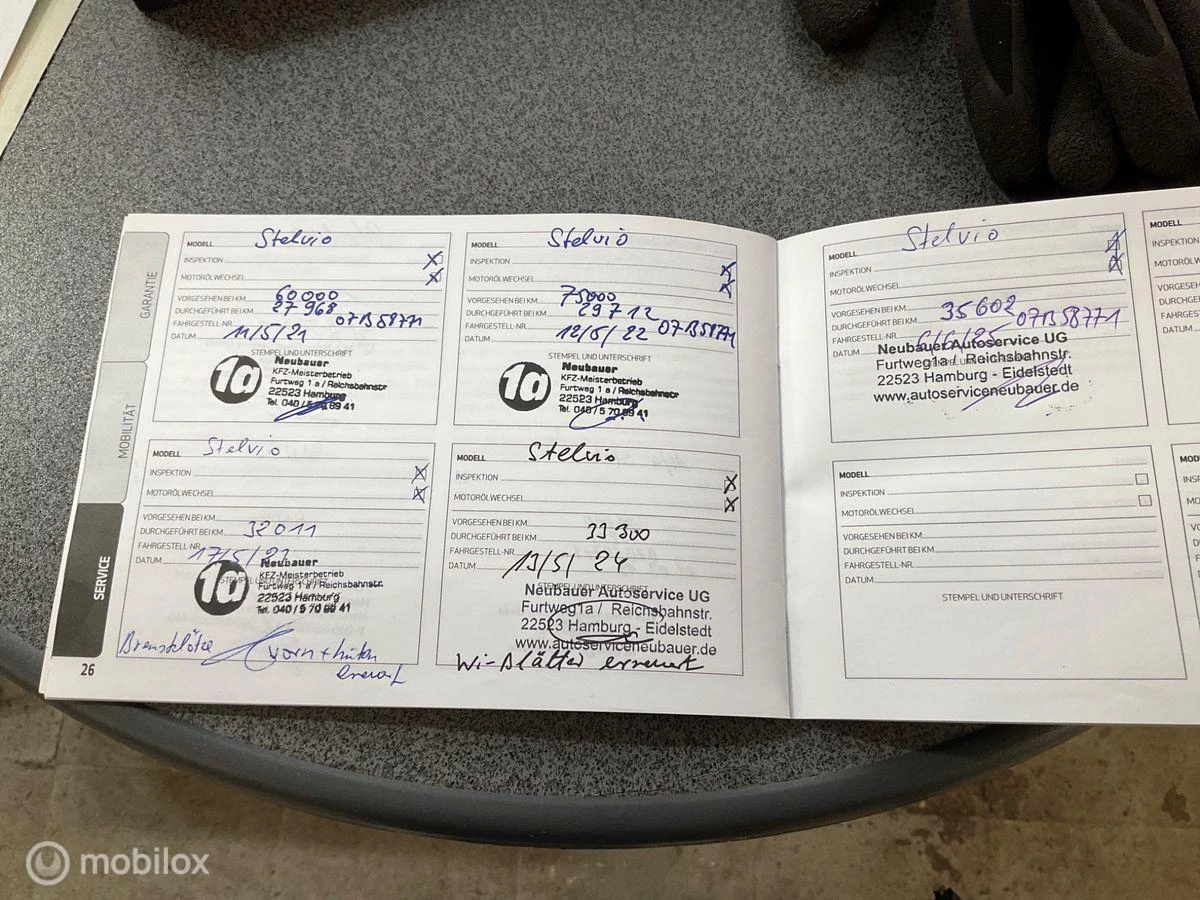 GARANTIE
MOBILITÄT
SERVICE
MODELL Stelvio
INSPEKTION X
MOTORÖLWECHSEL X
VORGESEHEN BEI KM 60000
DURCHGEFÜHRT BEI KM 27968
FAHRGESTELL-NR. 07B58771
DATUM 11/5/21
STEMPEL UND UNTERSCHRIFT
1a
Neubauer
KFZ-Meisterbetrieb
Furtweg 1 a / Reichsbahnstr
22523 Hamburg
Tel. 040 / 5 70 89 41
MODELL Stelvio
INSPEKTION X
MOTORÖLWECHSEL X
VORGESEHEN BEI KM 75000
DURCHGEFÜHRT BEI KM 29712
FAHRGESTELL-NR. 07B58771
DATUM 12/5/22
STEMPEL UND UNTERSCHRIFT
1a
Neubauer
KFZ-Meisterbetrieb
Furtweg 1 a / Reichsbahnstr
22523 Hamburg
Tel. 040 / 5 70 89 41
MODELL Stelvio
INSPEKTION X
MOTORÖLWECHSEL X
VORGESEHEN BEI KM
DURCHGEFÜHRT BEI KM 32011
FAHRGESTELL-NR.
DATUM 17/5/23
STEMPEL UND UNTERSCHRIFT
1a
Neubauer
KFZ-Meisterbetrieb
Furtweg 1 a / Reichsbahnstr.
22523 Hamburg
Tel. 040 / 5 70 89 41
Bremsklötze vorn + hinten
erneuert
MODELL Stelvio
INSPEKTION X
MOTORÖLWECHSEL X
VORGESEHEN BEI KM
DURCHGEFÜHRT BEI KM 33300
FAHRGESTELL-NR.
DATUM 13/5/24
STEMPEL UND UNTERSCHRIFT
Neubauer Autoservice UG
Furtweg1a / Reichsbahnstr.
22523 Hamburg - Eidelstedt
www.autoserviceneubauer.de
Wi-Blätter erneuert
26
MODELL Stelvio
INSPEKTION X
MOTORÖLWECHSEL X
VORGESEHEN BEI KM
DURCHGEFÜHRT BEI KM 35602
FAHRGESTELL-NR. 07B58771
DATUM 6/6/25
Neubauer Autoservice UG
Furtweg1a / Reichsbahnstr.
22523 Hamburg - Eidelstedt
www.autoserviceneubauer.de
MODELL
INSPEKTION
MOTORÖLWECHSEL
VORGESEHEN BEI KM
DURCHGEFÜHRT BEI KM
FAHRGESTELL-NR.
DATUM
STEMPEL UND UNTERSCHRIFT
MODELL
INSPEKTION
mobilox